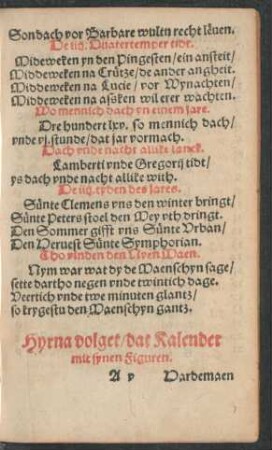 Sondach vor Barbare wultu recht lēuen.
De iiij. Quatertemper tidt.
Mideweken yn den Pingesten / ein ansteit /
Middeweken na Crütze / de ander angheit.
Middeweken na Lucie / vor Wynachten /
Middeweken na asßken wil erer wachten.
Wo mennich dach yn einem jare.
Dre hundert lxv. so mennich dach /
vnde vj. stunde / dat jar vormach.
Dach vnde nacht allike lanck.
Lamberti vnde Gregorij tidt /
ys dach vnde nacht allike with.
De iiij. tyden des Jares.
Sünte Clemens vns den winter bringt /
Sünte Peters stoel den Mey yth dringt.
Den Sommer gifft vns Sünte Vrban /
Den Heruest Sünte Symphorian.
Tho vinden den Nyen Maen.
Nym war wat dy de Maenschyn sage /
sette dartho negen vnde twintich dage.
Veertich vnde twe minuten glantz /
so krygestu den Maenschyn gantz.
Hyrna volget / dat Kalender
mit synen Figuren.
A v Hardemaen